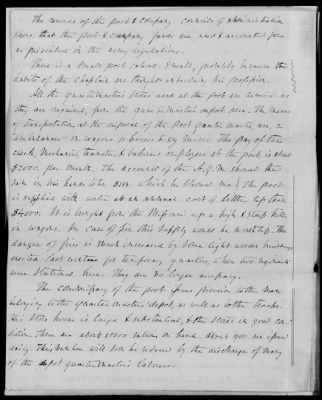 The records of the post & company councils of administration
show that the post & company funds are used & accounted for
as prescribed in the army regulations.
There is a small post school. Small, probably because the
habits of the Chaplain are
All the quartermasters stores used at the post are issued as
they are required, from the quartermasters depot here. The means
of transportation, at the disposal of the post quartermaster are, 2
ambulances 10 wagons 11 horses & 59 mules. The pay of the
clerk, Mechanics, teamsters & laborers employees at the post is about
per month. The accounts of the A.Q.M. showed the
sum in his hands to be over which he showed me. The post
is supplied with water at an annual cost of little less than
It is brought from the Missouri up a high & steep hill
in wagons. In case of fire this supply would be worthless. The
danger of fire is much increased by some light wooden buildings
erected last autumn for temporary quarters, when two regiments
were stationed here. They are no longer necessary.
The commissary of the post issues provisions to the men
belonging to the quartermasters depot, as well as to the troops.
His store house is large & substantial, & the stores in good con-
dition. There are about rations on hand. About 900 are issued
daily. This number will soon be reduced by the discharge of many
of the depot quartermasters laborers.